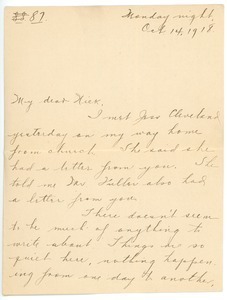 87
Monday night,
Oct 14, 1918
My dear Nick,
I met Jess Cleveland
yesterday on my way home
from church. She said she
had a letter from you. She
told me Fuller also had
a letter from you.
There doesn't seem
to be much of anything to
write about. Things are so
quiet here, nothing happen
ing from one day to another.